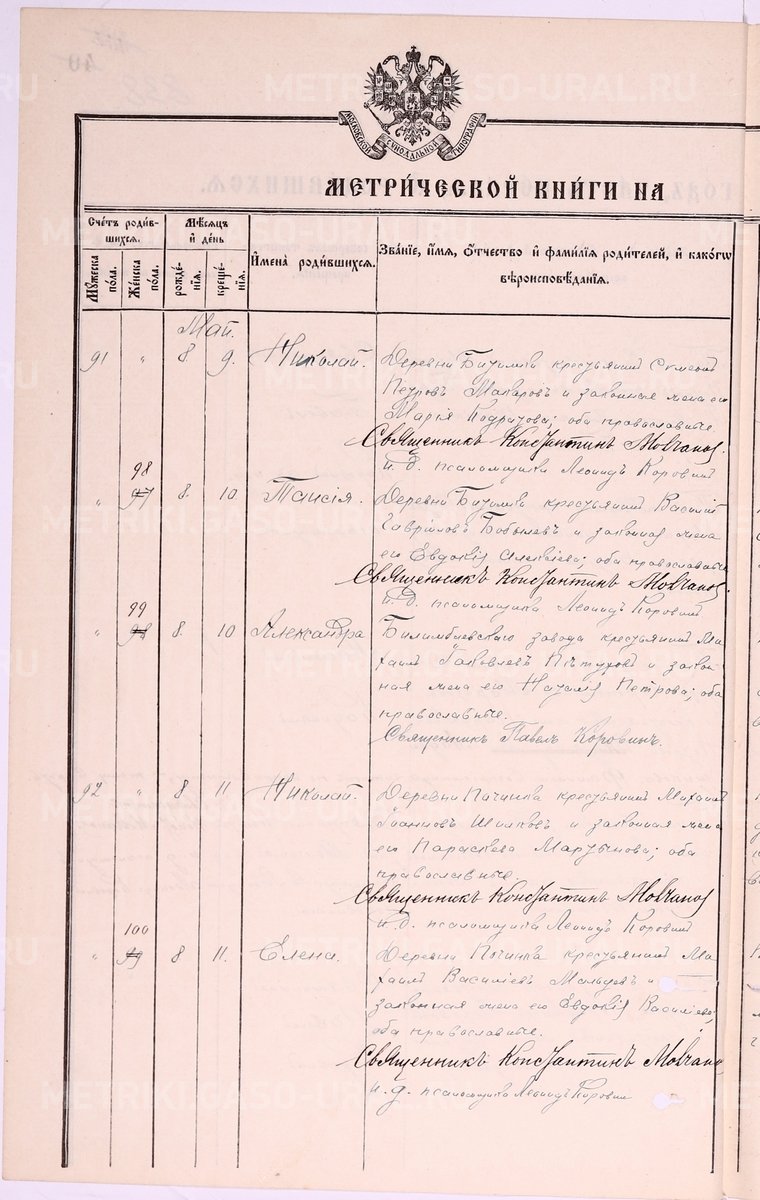 МОСКОВСКОЙ СѴНОДАЛЬНОЙ ТИПОГРАФІИ
МЕТРИ́ЧЕСКОЙ КНИ́ГИ НА
Сче́тъ роди́в-
шихся.
Мѣ́сяцъ
и́ де́нь
И́мена̀ роди́вшихся.
Зва́нїе, и́мя, о́тчество и́ фами́лїя роди́телей, и́ како́гѡ
вѣроисповѣ́данїя.
Мꙋ́жеска
по́ла.
Же́нска
по́ла.
рожде́-
нїѧ.
креще́-
нїѧ.
Май.
91 " 8. 9. Николай. Деревни крестьянинъ Сѵмеонъ
Петровъ Макаровъ и законная жена его
Марія оба православные.
Священникъ Константинъ Молчанов
и. д. псаломщика Леонидъ Коровинъ
98
" 97 8. 10 Таисія. Деревни крестьянинъ Василій
Гавріиловъ Бобылевъ и законная жена
его Евдокія Алексѣева; оба православные
Священникъ Константинъ Молчанов
и. д. псаломщика Леонидъ Коровинъ
99
" 98 8. 10 Александра Билимбаевскаго завода крестьянинъ Ми-
хаилъ Іаковлевъ Пѣтуховъ и закон-
ная жена его Петрова; оба
православные.
Священникъ Павелъ Коровинъ.
92 " 8 11. Николай. Деревни Починка крестьянинъ Михаилъ
Іоанновъ и законная жена
его Параскева Мартынова; оба
православные.
Священникъ Константинъ Молчанов
и. д. псаломщика Леонидъ Коровинъ
100
" 99 8 11. Елена. Деревни Починка крестьянинъ Ми-
хаилъ Василіевъ Мальцевъ и
законная жена его Евдокія Василіева;
оба православные.
Священникъ Константинъ Молчано
и. д. псаломщика Леонидъ Коровин
METRIKI.GASO-URAL.RU